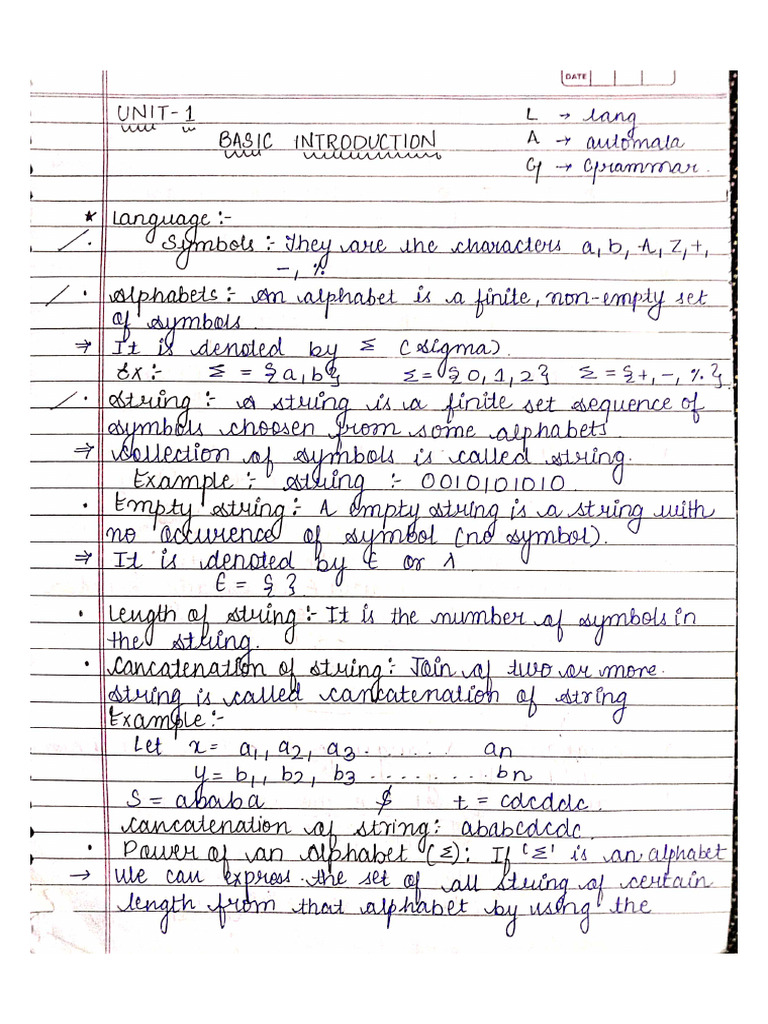 DATE
UNIT-1
L → lang
BASIC INTRODUCTION
A → automata
G → Grammar.
* Language :-
Symbols :- They are the characters a, b, A, Z, +,
-, %
· Alphabets :- An alphabet is a finite, non-empty set
of symbols.
⇒ It is denoted by Σ (sigma).
Ex :- Σ = {a, b} Σ = {0, 1, 2} Σ = {+, -, %}
· String :- A string is a finite set sequence of
symbols choosen from some alphabets.
⇒ Collection of symbols is called string.
Example :- string :- 0010101010
· Empty string :- A empty string is a string with
no occurence of symbol (no symbol).
⇒ It is denoted by ϵ or λ
ϵ = { }
· Length of string :- It is the number of symbols in
the string.
· Cancatenation of string :- Join of two or more.
string is called cancatenation of string
Example :-
Let x = a1, a2, a3 ....... an
y = b1, b2, b3 ........ bn
S = ababa $ t = cdcdcdc.
Cancatenation of string :- ababcdcdc.
· Power of an alphabet (Σ) : If 'Σ' is an alphabet
→ We can express the set of all string of certain
length from that alphabet by using the